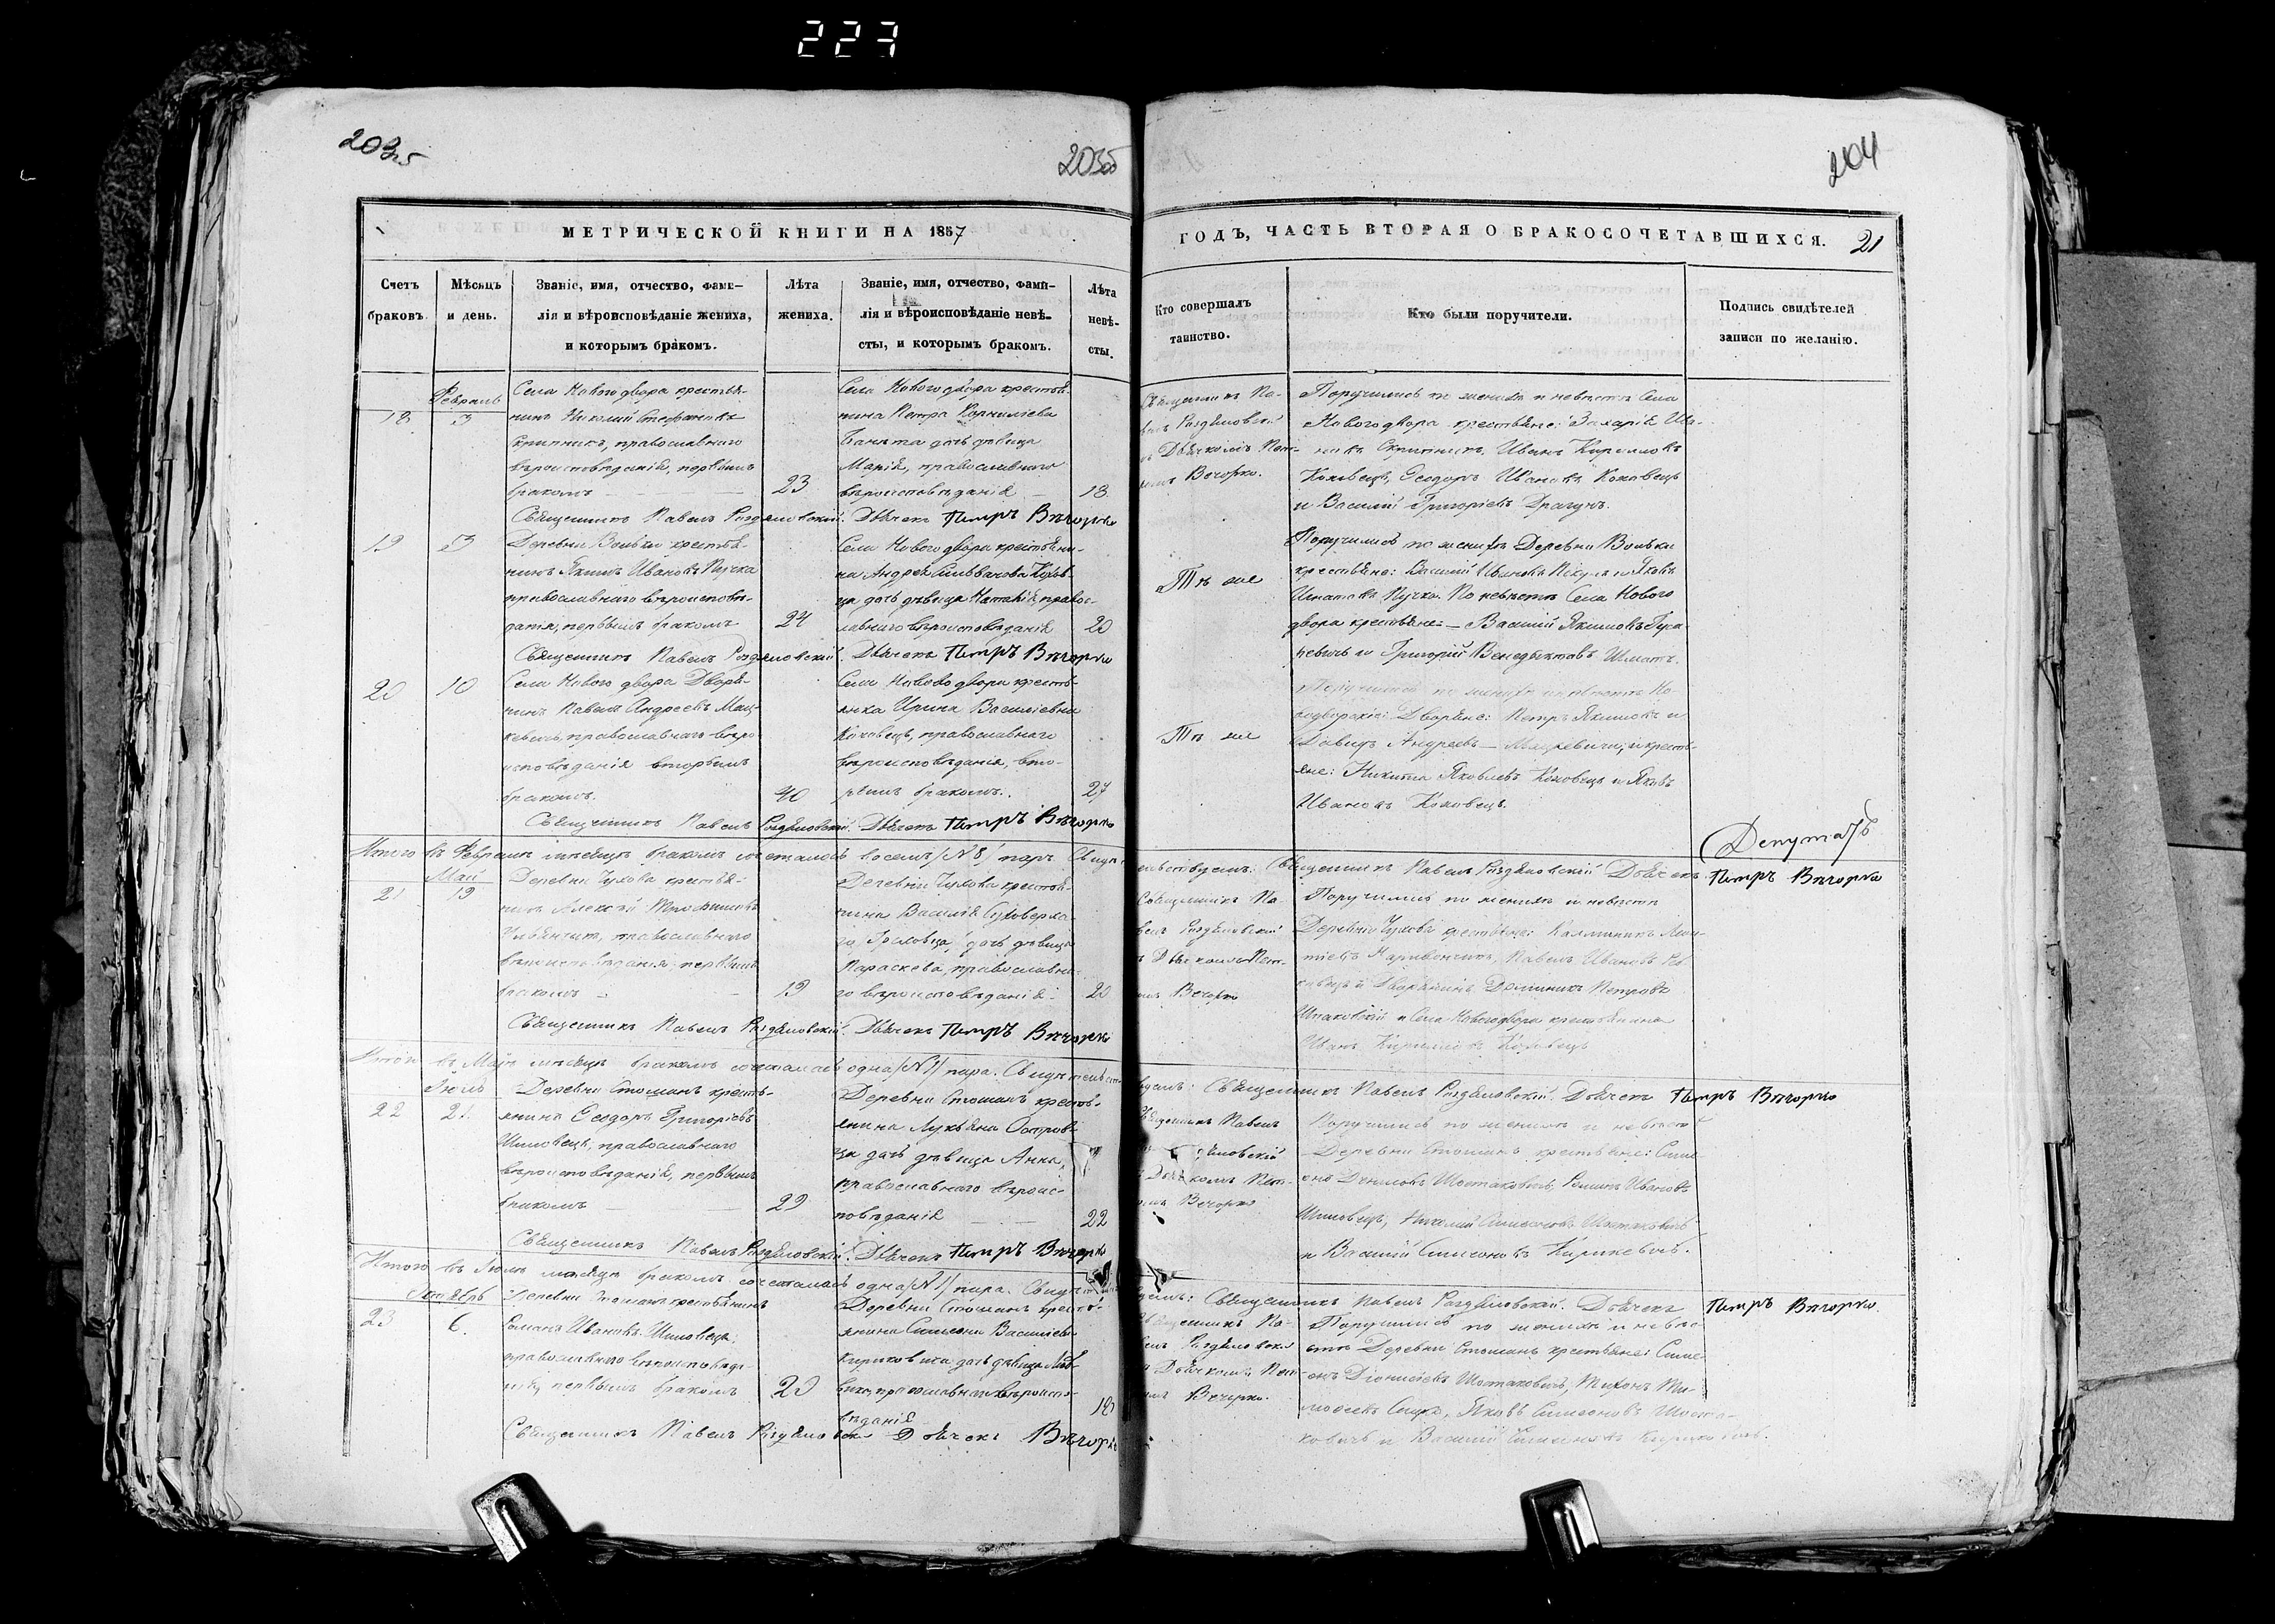 227
203об
203об
204
МЕТРИЧЕСКОЙ КНИГИ НА 1857
ГОДЪ, ЧАСТЬ ВТОРАЯ О БРАКОСОЧЕТАВШИХСЯ. 21
Счетъ браковъ.
Мѣсяцъ и день.
Званіе, имя, отчество, фами-
лія и вѣроисповѣданіе жениха,
и которымъ бракомъ.
Лѣта
жениха.
Званіе, имя, отчество, фами-
лія и вѣроисповѣданіе невѣ-
сты, и которымъ бракомъ.
Лѣта
невѣ-
сты.
Кто совершалъ
таинство.
Кто были поручители.
Подпись свидѣтелей
записи по желанію.
Февраль
18
3
Села Нового двора крестья-
нинъ Николай Стефановъ
Скрипникъ, православнаго
вѣроисповѣданія, первымъ
бракомъ
23
Села Нового двора крестья-
нина Петра Корниліева
дочь дѣвица
Марія, православнаго
вѣроисповѣданія
18
Священникъ Па-
велъ Роздяловскій
съ Дьячкомъ Пет-
ромъ Вечорко.
Поручились по женихѣ и невѣстѣ Села
Нового двора крестьяне: Захарій Ива-
новъ Скрипникъ, Иванъ Кирилловъ
Коховецъ, Ѳеодоръ Ивановъ Коховецъ
и Василій Григоріевъ Драгунъ.
Священникъ Павелъ Роздяловскій. Дьячекъ Петръ Вѣчорко
19
3
Деревни Вольки крестья-
нинъ Якимъ Ивановъ Пучка
православнаго вѣроисповѣ-
данія, первымъ бракомъ
24
Села Нового двора крестьяни-
на Андрея Сильванова Кохов-
ца дочь дѣвица Наталія, правос-
лавнаго вѣроисповѣданія
20
Тѣ же
Поручились по женихѣ Деревни Вольки
крестьяне: Василій Ивановъ и Яковъ
Игнатовъ Пучко. По невѣстѣ Села Нового
двора крестьяне: Василій Якимовъ
и Григорій Венедиктовъ Шматъ.
Священникъ Павелъ Роздяловскій. Дьячекъ Петръ Вѣчорко
20
10
Села Нового двора Дворя-
нинъ Павелъ Андреевъ Мац-
кевичъ, православнаго вѣро-
исповѣданія вторымъ
бракомъ.
40
Села Новово двора кресть-
янка Ирина Василіевна
Коховецъ, православнаго
вѣроисповѣданія, вто-
рымъ бракомъ.
27
Тѣ же
Поручились по женихѣ и невѣстѣ Но-
водворскіе: Дворяне: Петръ Якимовъ и
Давидъ Андреевъ Мацкевичи, и кресть-
яне: Никита Яковлевъ Коховецъ и Яковъ
Ивановъ Коховецъ.
Священникъ Павелъ Роздяловскій. Дьячекъ Петръ Вѣчорко
Депутатъ
Итого въ Февралѣ мѣсяцѣ бракомъ сочеталось восемь /№ 8/ паръ. Свидѣтельствуемъ: Священникъ Павелъ Роздяловскій Дьячекъ Петръ Вѣчорко
Май
21
19
Деревни Чухова крестья-
нинъ Алексѣй Трофимовъ
православнаго
вѣроисповѣданія первымъ
бракомъ
19
Деревни Чухова крестья-
нина Василія
дочь дѣвица
Параскева, православна-
го вѣроисповѣданія
20
Священникъ Па-
велъ Роздяловскій
съ Дьячкомъ Пет-
ромъ Вечорко
Поручились по женихѣ и невѣстѣ
Деревни Чухова крестьяне:
Павелъ Ивановъ
и Дворянинъ Доминикъ Петровъ
Шпаковскій и Села Новогодвора крестьянинъ
Иванъ Кирилловъ Коховецъ
Священникъ Павелъ Роздяловскій. Дьячекъ Петръ Вѣчорко
Итого въ Маѣ мѣсяцѣ бракомъ сочеталась одна /№ 1/ пара. Свидѣтельствуемъ: Священникъ Павелъ Роздяловскій. Дьячекъ Петръ Вѣчорко
22
21.
Деревни Стошанъ кресть-
янинъ Ѳеодоръ Григоріевъ
Шиловецъ, православнаго
вѣроисповѣданія, первымъ
бракомъ
29
Деревни Стошанъ кресть-
янина Лукьяна Остров-
ца дочь дѣвица Анна,
православнаго вѣроис-
повѣданія
22
Священникъ Павелъ
Роздяловскій
съ Дьячкомъ Пет-
ромъ Вечорко
Поручились по женихѣ и невѣстѣ
Деревни Стошанъ крестьяне: Симе-
онъ Шостаковичъ, Романъ Ивановъ
Шиловецъ, Николай Симеоновъ Шостаковичъ
и Василій Симеоновъ Кириковичъ.
Священникъ Павелъ Роздяловскій. Дьячекъ Петръ Вѣчорко
Итого въ мѣсяцѣ бракомъ сочеталась одна /№ 1/ пара. Свидѣтельствуемъ: Священникъ Павелъ Роздяловскій. Дьячекъ Петръ Вѣчорко.
Октябрь
23
6.
Деревни Стошанъ крестьянинъ
Романъ Ивановъ Шиловецъ,
православнаго вѣроисповѣда-
нія, первымъ бракомъ
20
Деревни Стошанъ кресть-
янина Симеона Василіева
Кириковича дочь дѣвица
православнаго вѣроиспо-
вѣданія
18
Священникъ Па-
велъ Роздяловскій
съ Дьячкомъ Пет-
ромъ Вечорко.
Поручились по женихѣ и невѣ-
стѣ Деревни Стошанъ крестьяне: Симе-
онъ Діонисіевъ Шостаковичъ, Тихонъ Ти-
мофеевъ Яковъ Симеоновъ Шоста-
ковичъ и Василій Симеоновъ Кириковичъ.
Священникъ Павелъ Роздяловскій Дьячекъ Вѣчорко